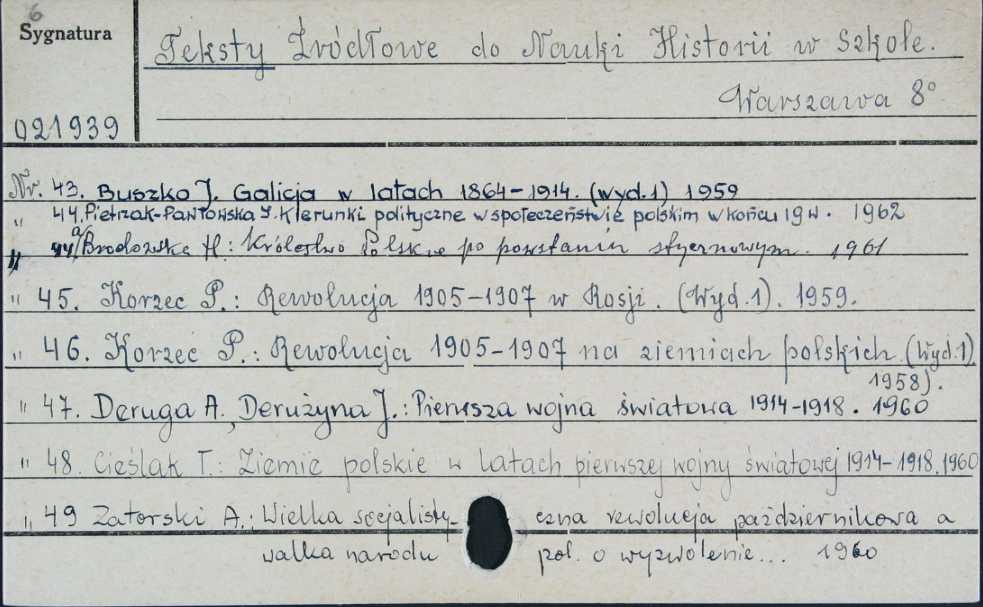 6
Sygnatura
Teksty Źródłowe do Nauki Historii w Szkole.
Warszawa 8°
021939
Nr. 43. Buszko J. Galicja w latach 1864-1914. (wyd.1) 1959
" 44. Pietrzak-Pawłowska I. Kierunki polityczne w społeczeństwie polskim w końcu 19 w. 1962
" 44a/ Brodowska H: Królestwo Polskie po powstaniu styczniowym. 1961
" 45. Korzec P.: Rewolucja 1905-1907 w Rosji. (Wyd.1). 1959.
" 46. Korzec P.: Rewolucja 1905-1907 na ziemiach polskich. (Wyd.1)
1958).
" 47. Deruga A., Derużyna J.: Pierwsza wojna światowa 1914-1918. 1960
" 48. Cieślak T.: Ziemie polskie w latach pierwszej wojny światowej 1914-1918. 1960
" 49 Zatorski A.: Wielka socjalisty- czna rewolucja październikowa a
walka narodu pol. o wyzwolenie... 1960